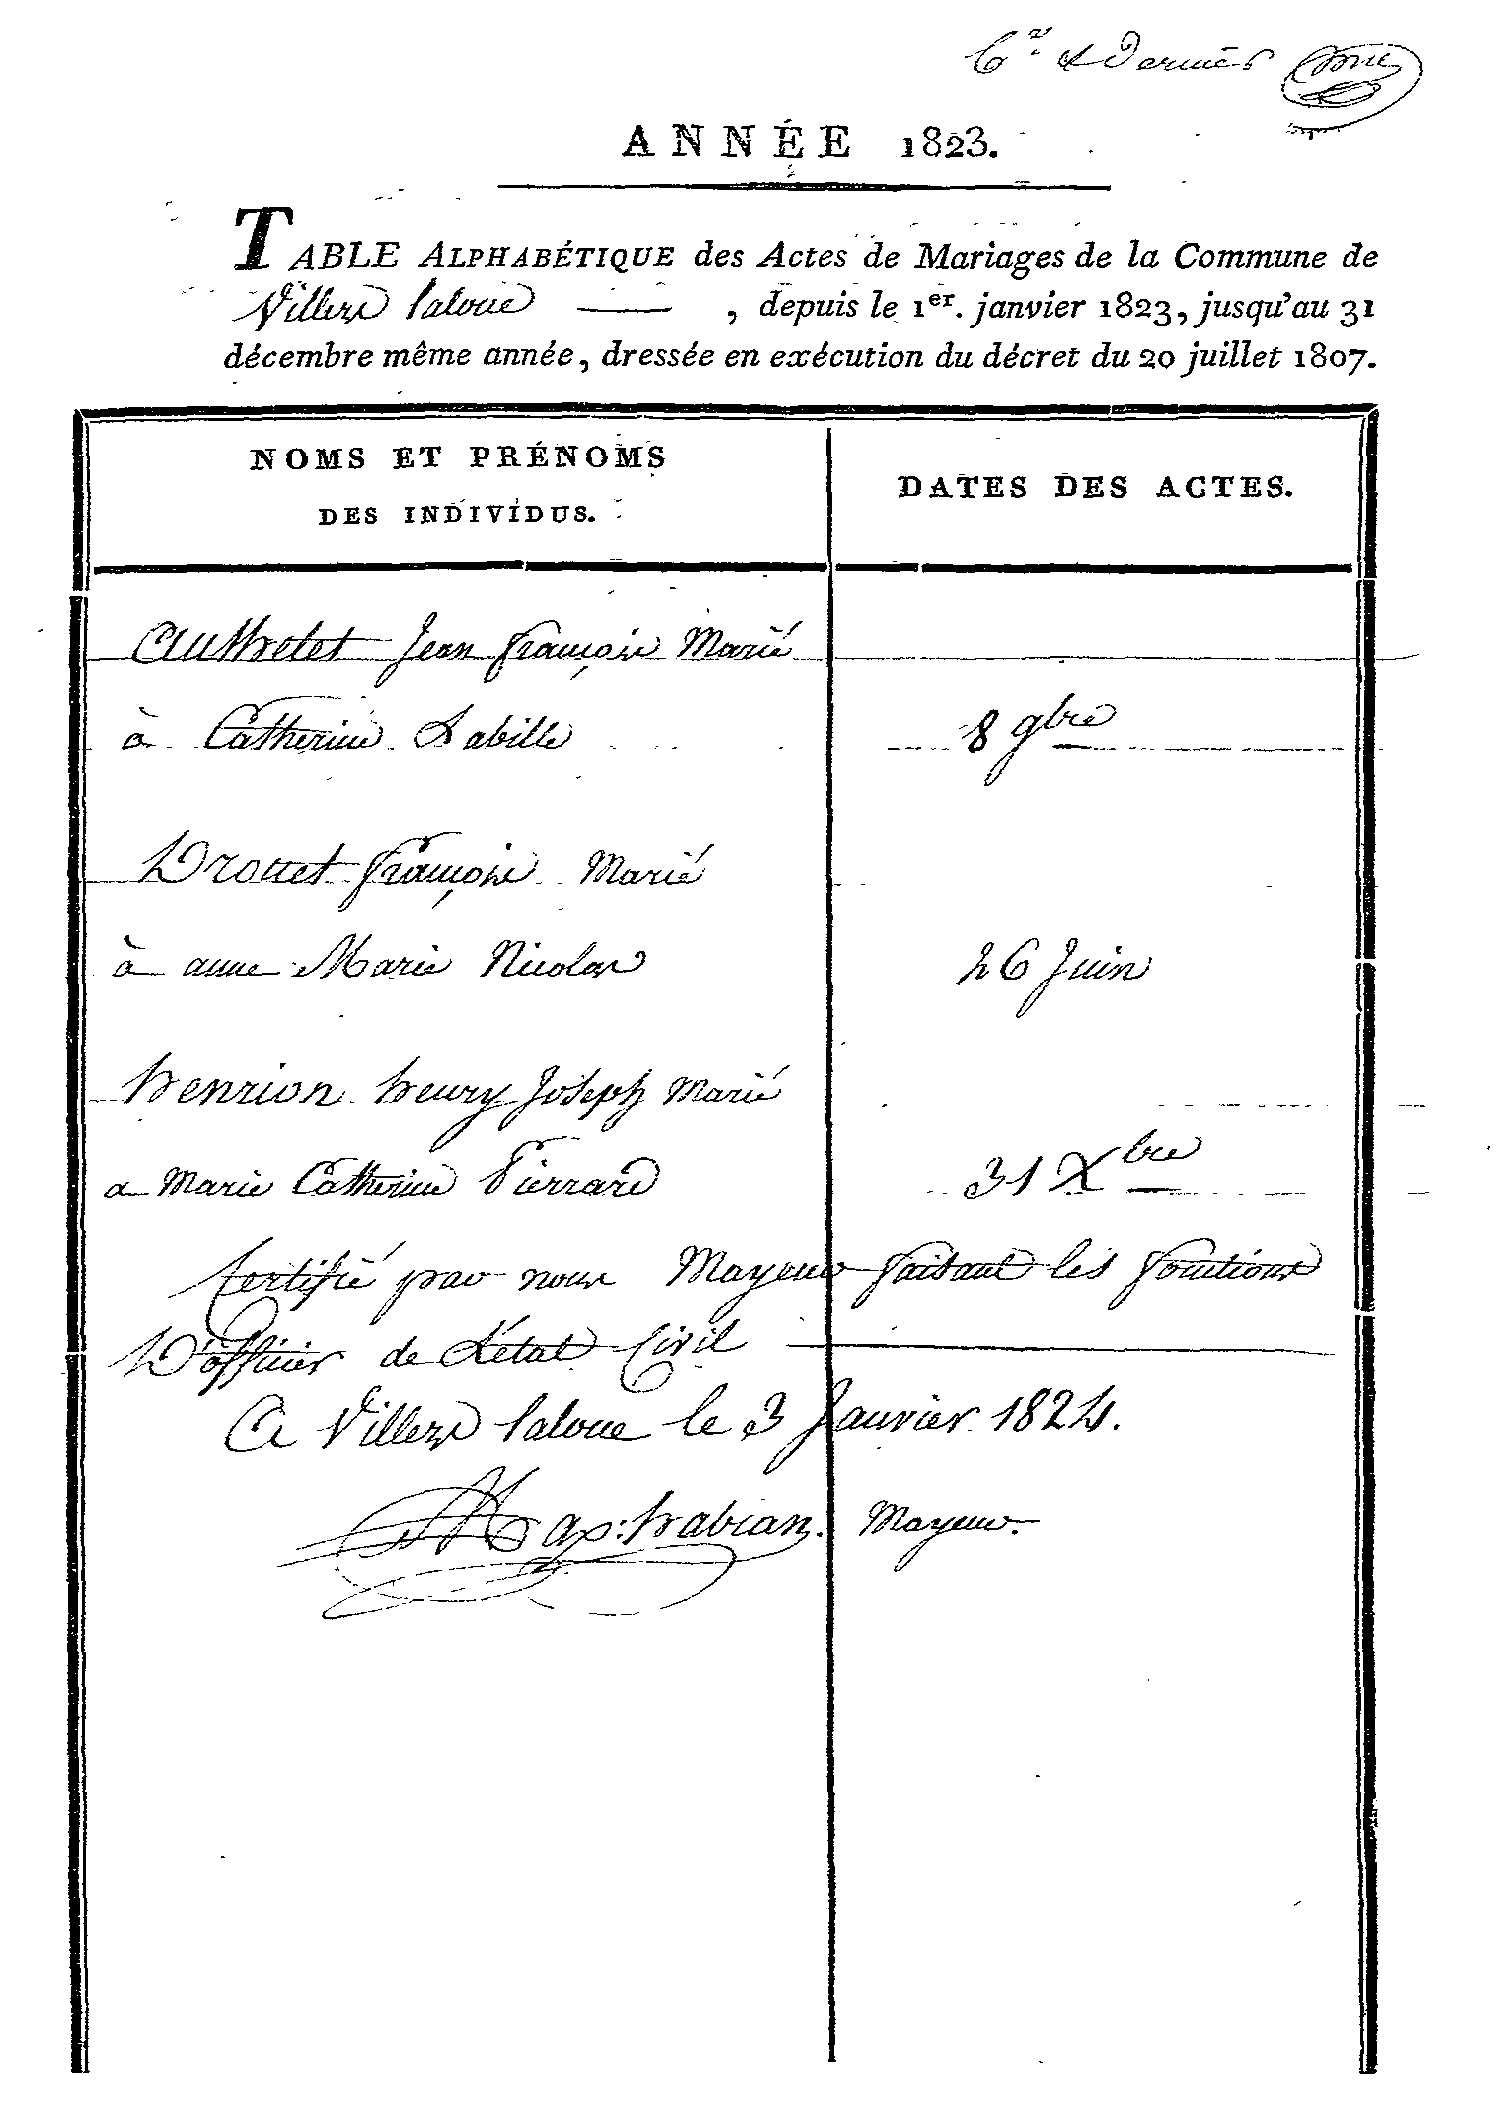 6.e & dernier
ANNÉE 1823.
TABLE ALPHABÉTIQUE des Actes de Mariages de la Commune de
Villers laloue ——, depuis le 1er. janvier 1823, jusqu'au 31
décembre même année, dressée en exécution du décret du 20 juillet 1807.
NOMS ET PRÉNOMS
DES INDIVIDUS.
DATES DES ACTES.
Authelet Jean françois Marié
à Catherine Labille
8 9bre
Drouet françois Marié
à anne Marie Nicolas
26 Juin
henrion henry Joseph Marié
a Marie Catherine Pierrard
31 Xbre
Certifié par nous Mayeur faisant les fonctions
D'officier de L'état Civil
A Villers laloue le 3 Janvier 1824.
Max: habran. Mayeur.